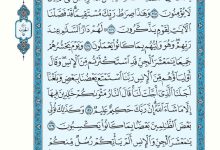 لَا يُؤْمِنُونَ ۝ وَهَٰذَا صِرَٰطُ رَبِّكَ مُسْتَقِيمًا قَدْ فَصَّلْنَا
ٱلْءَايَٰتِ لِقَوْمٍ يَذَّكَّرُونَ ۝ لَهُمْ دَارُ ٱلسَّلَٰمِ عِندَ
رَبِّهِمْ وَهُوَ وَلِيُّهُم بِمَا كَانُوا۟ يَعْمَلُونَ ۝ وَيَوْمَ يَحْشُرُهُمْ
جَمِيعًا يَٰمَعْشَرَ ٱلْجِنِّ قَدِ ٱسْتَكْثَرْتُم مِّنَ ٱلْإِنسِ وَقَالَ
أَوْلِيَآؤُهُم مِّنَ ٱلْإِنسِ رَبَّنَا ٱسْتَمْتَعَ بَعْضُنَا بِبَعْضٍ وَبَلَغْنَآ
أَجَلَنَا ٱلَّذِىٓ أَجَّلْتَ لَنَا قَالَ ٱلنَّارُ مَثْوَىٰكُمْ خَٰلِدِينَ فِيهَآ
إِلَّا مَا شَآءَ ٱللَّهُ إِنَّ رَبَّكَ حَكِيمٌ عَلِيمٌ ۝ وَكَذَٰلِكَ نُوَلِّى
بَعْضَ ٱلظَّٰلِمِينَ بَعْضًۢا بِمَا كَانُوا۟ يَكْسِبُونَ ۝
يَٰمَعْشَرَ ٱلْجِنِّ وَٱلْإِنسِ أَلَمْ يَأْتِكُمْ رُسُلٌ مِّنكُمْ